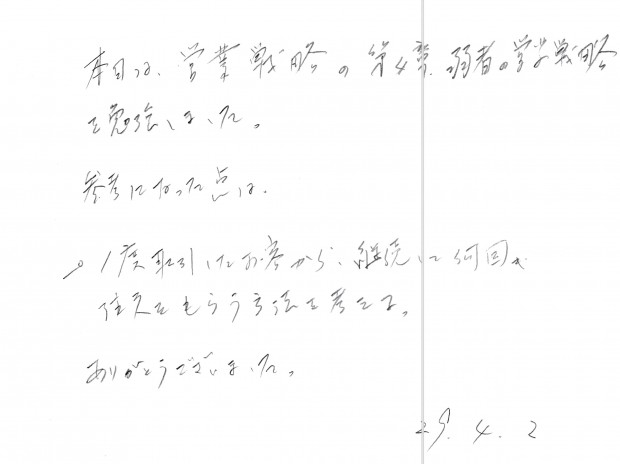 本日は、営業戦略の第4章、弱者の営業戦略
を勉強しました。
参考になった点は、
○1度取引したお客から、継続して何回も
注文をもらう方法を考える。
ありがとうございました。
29.4.2